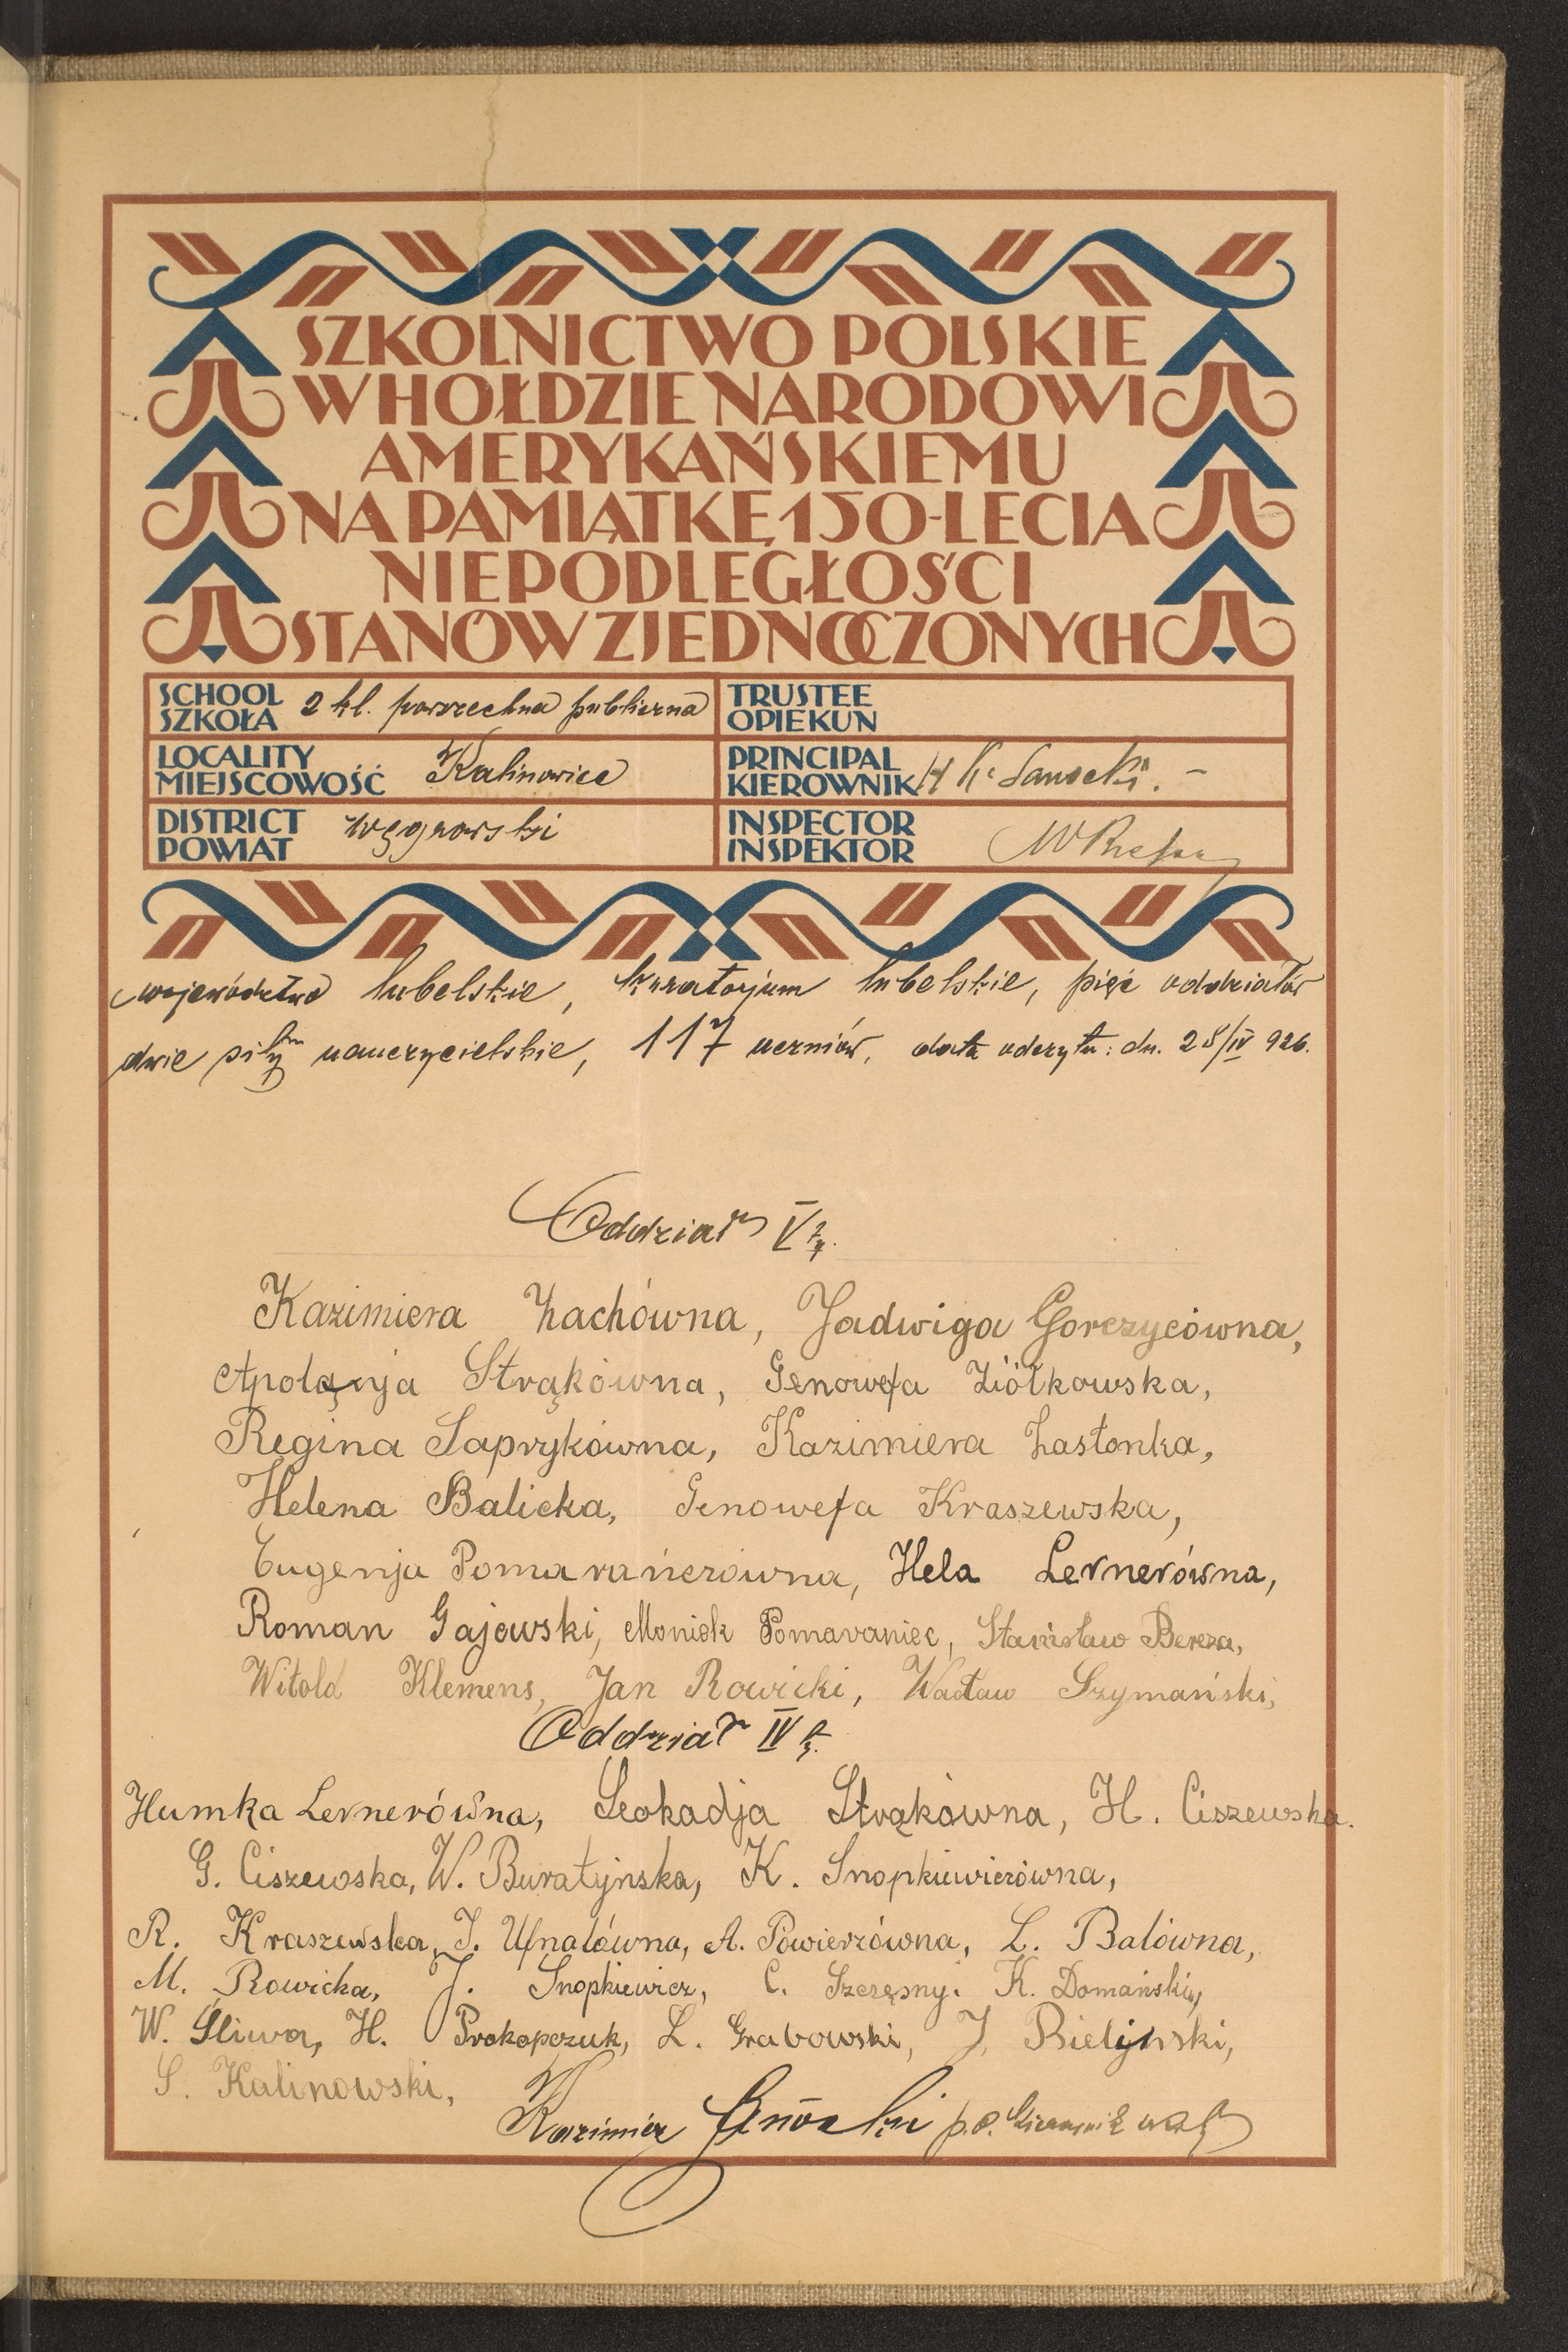 SZKOLNICTWO POLSKIE
W HOŁDZIE NARODOWI
AMERYKAŃSKIEMU
NA PAMIĄTKĘ 150-LECIA
NIEPODLEGŁOŚCI
STANÓW ZJEDNOCZONYCH
SCHOOL
SZKOŁA 2 kl. powszechna publiczna
TRUSTEE
OPIEKUN
LOCALITY
MIEJSCOWOŚĆ Kalinowiec
PRINCIPAL
KIEROWNIK K. Sanocki. -
DISTRICT
POWIAT węgrowski
INSPECTOR
INSPEKTOR
województwo lubelskie, kuratorjum lubelskie, pięć oddziałów
dwie siły nauczycielskie, 117 uczniów, data odczytu: dn. 28/IV 926.
Oddział V
Kazimiera Zachówna, Jadwiga Gorczycówna,
Apolonja Strąkówna, Genowefa Ziółkowska,
Regina Saprykówna, Kazimiera Zasłonka,
Helena Balicka, Genowefa Kraszewska,
Eugenja Pomarańczówna, Hela Lernerówna,
Roman Gajewski, Moniek Pomaraniec, Stanisław Bereza,
Witold Klemens, Jan Rowicki, Wacław Szymański,
Oddział IV
Humka Lernerówna, Leokadja Strąkówna, H. Ciszewska.
G. Ciszewska, W. Buratyńska, K. Snopkiewiczówna,
R. Kraszewska, J. Ufnalówna, A. Powierzówna, L. Balówna,
M. Rowicka, J. Snopkiewicz, C. Szczęsny. K. Domański,
W. Śliwa, H. Prokopczuk, L. Grabowski, J. Bielijnski,
S. Kalinowski,
Kazimierz Sanocki p.o. kierownik